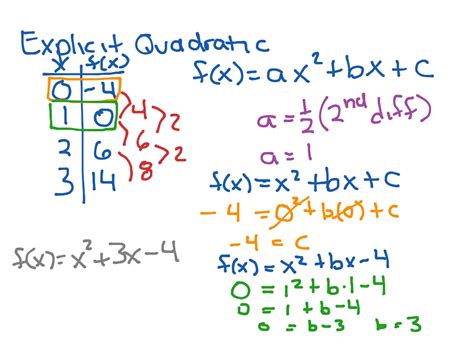 Explicit Quadratic
x f(x)
0 -4
1 0
2 6
3 14
4
6
8
2
2
f(x)=x²+3x-4
f(x)=ax²+bx+c
a=½(2nd diff)
a=1
f(x)=x²+bx+c
-4=0²+b(0)+c
-4=c
f(x)=x²+bx-4
0=1²+b·1-4
0=1+b-4
0=b-3 b=3